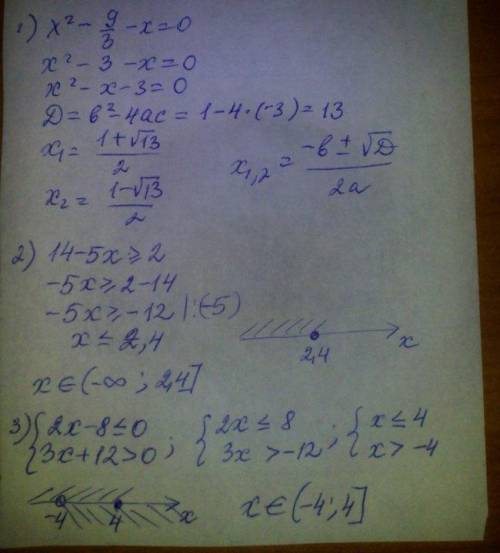 1) x² - 9/3 - x = 0
x² - 3 - x = 0
x² - x - 3 = 0
D = b² - 4ac = 1 - 4·(-3) = 13
x₁ = (1+√13)/2
x₁,₂ = (-b ± √D)/2a
x₂ = (1-√13)/2
2) 14-5x ≥ 2
-5x ≥ 2-14
-5x ≥ -12 |:(-5)
x ≤ 2,4
2,4 x
x ∈ (-∞ ; 2,4]
3) {2x-8≤0 ; {2x ≤ 8 ; {x ≤ 4
{3x+12>0 {3x > -12 {x > -4
-4 4 x
x ∈ (-4; 4]